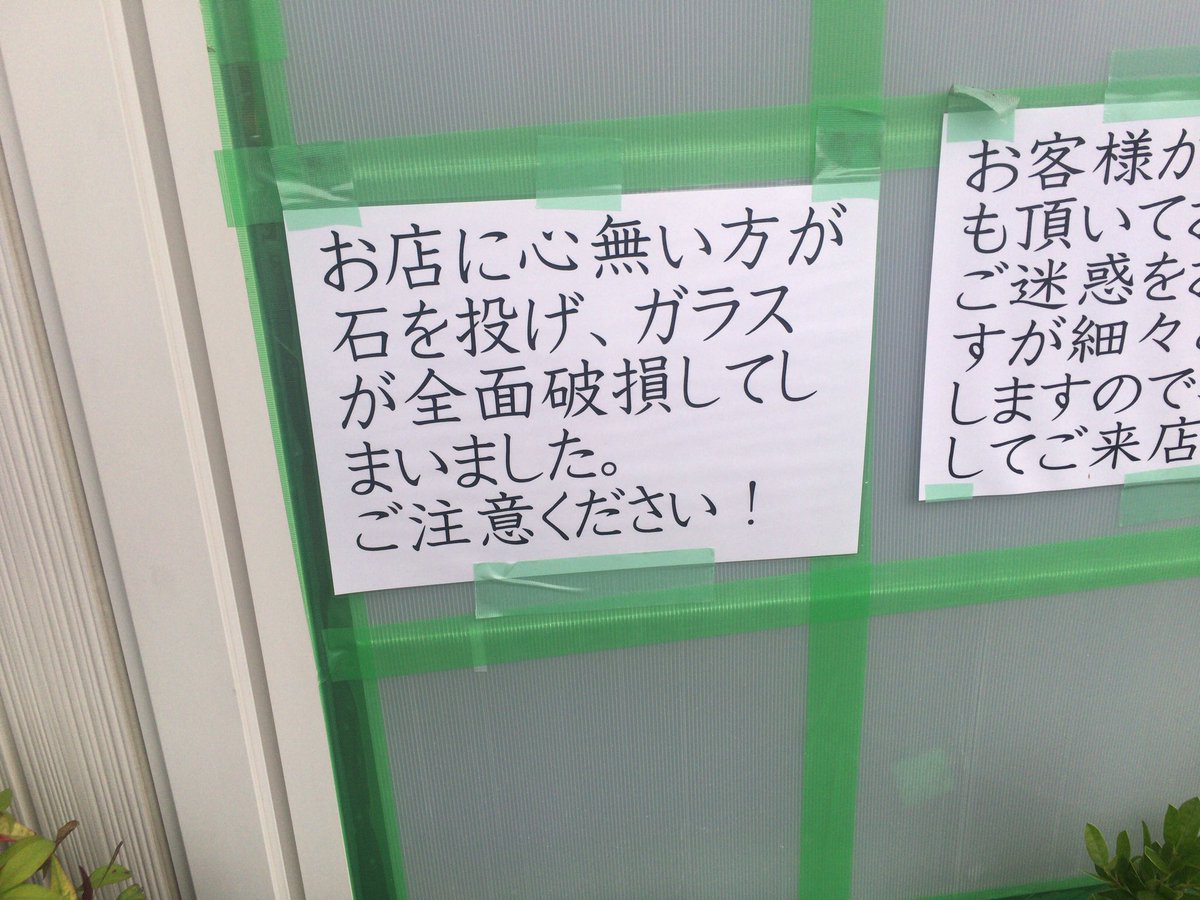 お店に心無い方が
石を投げ、ガラス
が全面破損してし
まいました。
ご注意ください！
お客様が
も頂いて
ご迷惑を
すが細々
しますので
してご来店